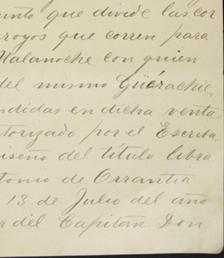 unto que divide las cor
royos que corren para
Walanoche con quien
del mismo Güárachic,
ndidas en dicha venta
utorizado por el Escriba
iseño del título libra
tonio de Orrantia
13 de Julio del año
r del Capitán Don